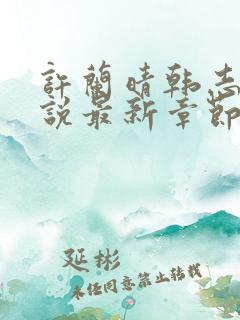 許蘭晴韩志
说最新章節
延彬
未经同意禁止转载